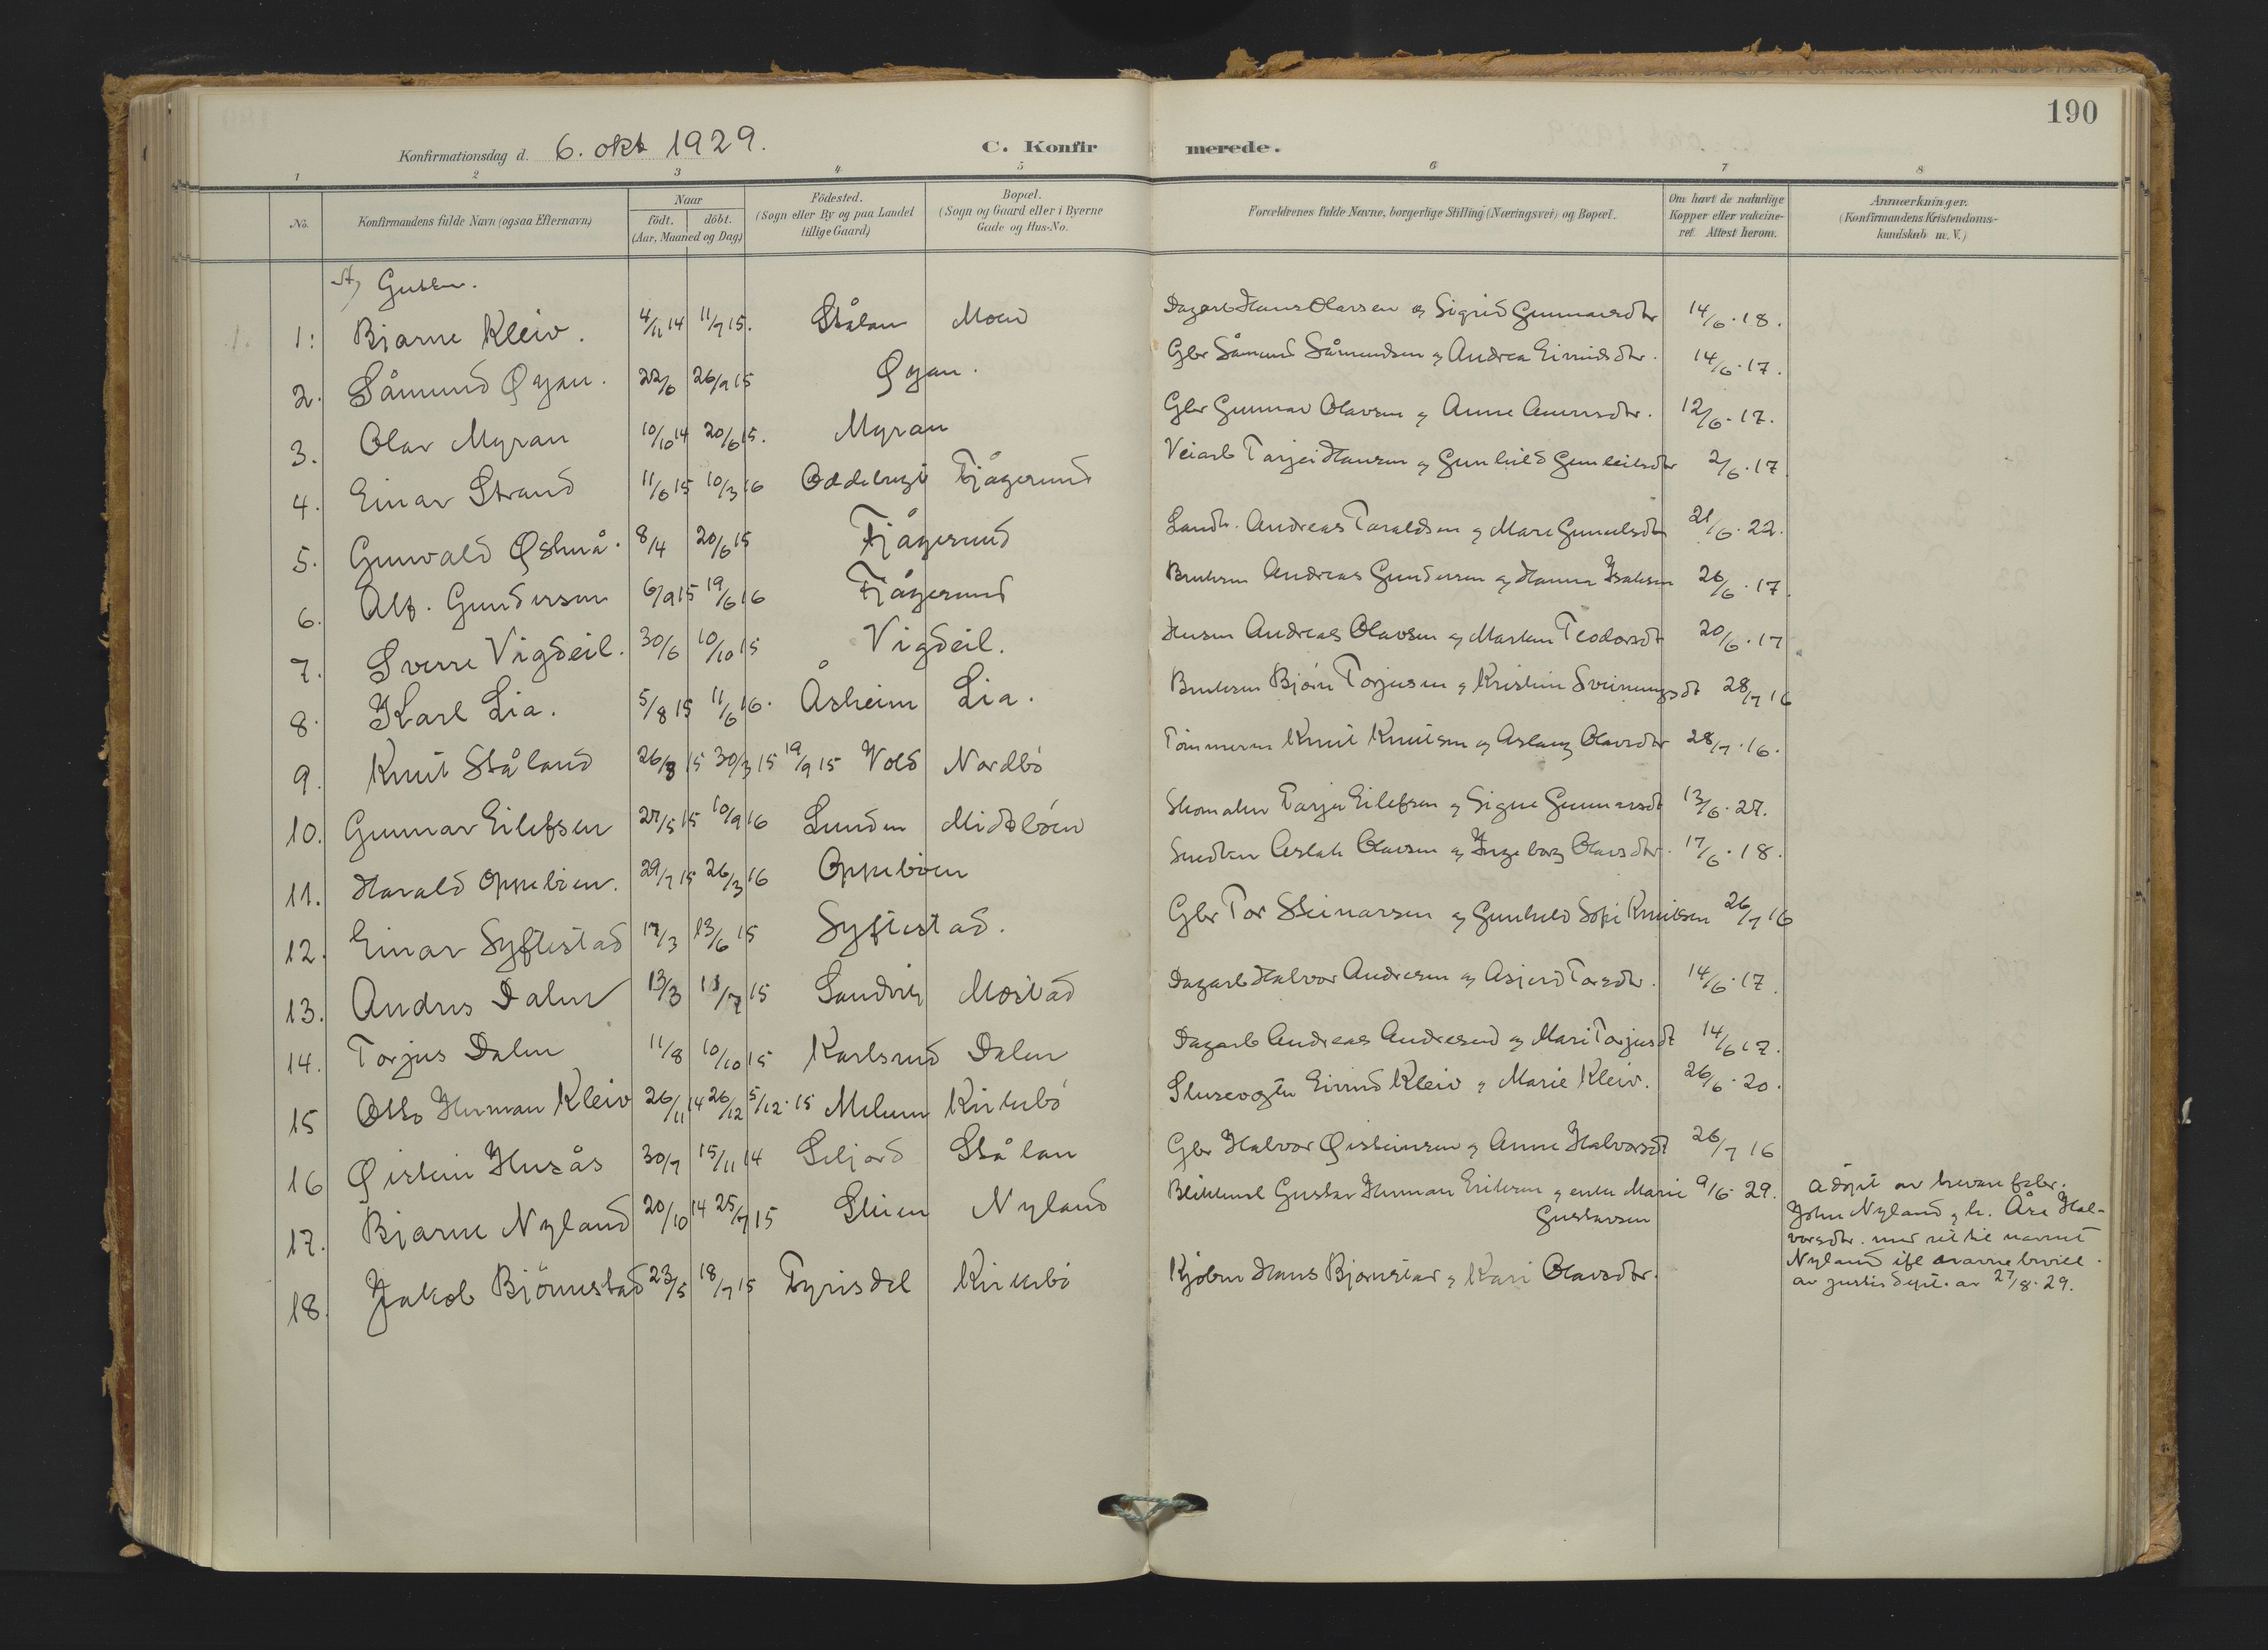 190
Konfirmationsdag d. 6. okt 1929. C. Konfirmerede.
1 2 3 4 5 6 7 8
No. Konfirmandens fulde Navn (ogsaa Efternavn) Naar födt. döbt. (Aar, Maaned og Dag) Födested. (Sogn eller By og paa Landet tillige Gaard) Bopæl. (Sogn og Gaard eller i Byerne Gade og Hus-No. Forældrenes fulde Navne, borgerlige Stilling (Næringsvei) og Bopæl. Om havt de naturlige Kopper eller vakcineret Attest herom. Anmærkninger. (Konfirmandens Kristendomskundskab m.V.)
A) Gutter.
1: Bjarne Kleiv. 4/11 14 11/7 15. Stålan Moen Dagarb Hans Olavsen og Sigrid Gunnarsdtr 14/6.18.
2. Såmund Øyan. 22/6 26/9 15 Øyan. Gbr Såmund Såmundsen og Andrea Eivindsdtr. 14/6.17.
3. Olav Myran 10/10 14 20/6 15. Myran Gbr Gunnar Olavsen og Anne Aanunsdtr. 12/6.17.
4. Einar Strand 11/6 15 10/3 16 Fjågesund Veiarb Tarjei Hansen og Gunhild Gunleiksdtr 2/6.17
5. Gunvald Østnå. 8/4 20/6 15 Fjågesund Landh. Andreas Taraldsen og Mari 21/6.22.
6. Alf. Gundersen 6/9 15 19/6 16 Fjågesund Andreas Gundersen og Hanna Isaksen 26/6.17.
7. Sverre Vigdeil. 30/6 10/10 15 Vigdeil. Husm Andreas Olavsen og Teodorsdt 20/6.17
8. Karl Lia. 5/8 15 11/6 16. Åsheim Lia. Bjørn Torjusen og Kristine Sveinungsdt 28/7 16
9. Knut Ståland 26/3 15 30/3 15 19/9 15 Vold Nordbö Tömmerm Knut Knutsen og Aslaug Olavsdtr 28/7.16.
10. Gunnar Eilefsen 27/5 15 10/9 16 Lunden Midtbøen Skomaker Tarjei Eilefsen og Signe Gunnarsdt 13/6.27.
11. Harald Oppebøen. 29/7 15 26/3 16 Oppebøen Snedker Aslak Olavsen og Ingeborg Olavsdtr. 17/6.18.
12. Einar Syftestad 17/3 13/6 15 Syftestad. Gbr Tor Steinarsen og Gunhild Sofi Knutsen 26/7 16
13. Andres Dalen 13/3 18/7 15 Sandvik Mostad Dagarb Halvor Andresen og Asjerd Torsdtr. 14/6.17.
14. Torjus Dalen 11/8 10/10 15 Karlsrud Dalen Dagarb Andreas Andresen og Mari Torjusdt 14/6 17.
15 Otto Herman Kleiv 26/11 14 26/12 5/12.15 Melum Kirkebö Slusevogter Eivind Kleiv og Marie Kleiv. 26/6.20.
16 Øistein Husås 30/7 15/11 14 Seljord Stålan Gbr Halvor Øisteinsen og Anne Halvorsdt 26/7 16
17. Bjarne Nyland 20/10 14 25/7 15 Skien Nyland Gustav Herman Eriksen og enke Marie Gustavsen 9/6.29. adopt av
John Nyland og h. Åse Hal-
vorsdtr. med ret til navnet
Nyland ifl
av justisdept. av 27/8.29.
18. Jakob Björnstad 23/5 18/7 15 Fyrisdal Kirkebö Kjöbm Hans Bjørnstad og Kari Olavsdtr.